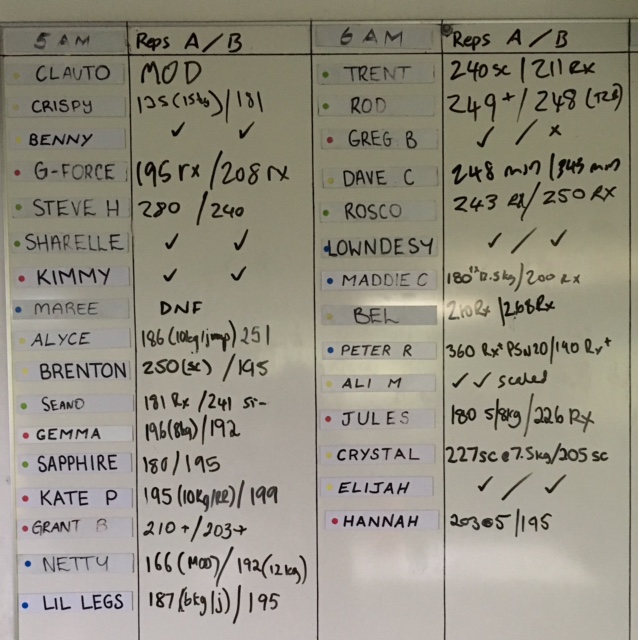 5 AM Reps A/B
CLAUTO MOD
CRISPY 135(15kg)/181
BENNY ✓ ✓
G-FORCE 195 rx/208 rx
STEVE H 280/240
SHARELLE ✓ ✓
KIMMY ✓ ✓
MAREE DNF
ALYCE 186(10kg/jmp) 251
BRENTON 250(sc)/195
SEANO 181 Rx/241
GEMMA 196(8kg)/192
SAPPHIRE 180/195
KATE P 195(10kg/RR)/199
GRANT B 210+/203+
NETTY 166(MOD)/192(12kg)
LIL LEGS 187(6kg/j)/195
6 AM Reps A/B
TRENT 240sc/211 Rx
ROD 249+/248
GREG B ✓/x
DAVE C 248 min/345 mm
ROSCO 243 Rx/250 Rx
LOWNDESY ✓/✓
MADDIE C 180 12.5kg/200 Rx
BEL 210Rx/268Rx
PETER R 360 Rx+ PSN20/140 Rx+
ALI M ✓✓ scaled
JULES 180 5/8kg/226 Rx
CRYSTAL 227sc@7.5kg/205 sc
ELIJAH ✓/✓
HANNAH 203@5/195